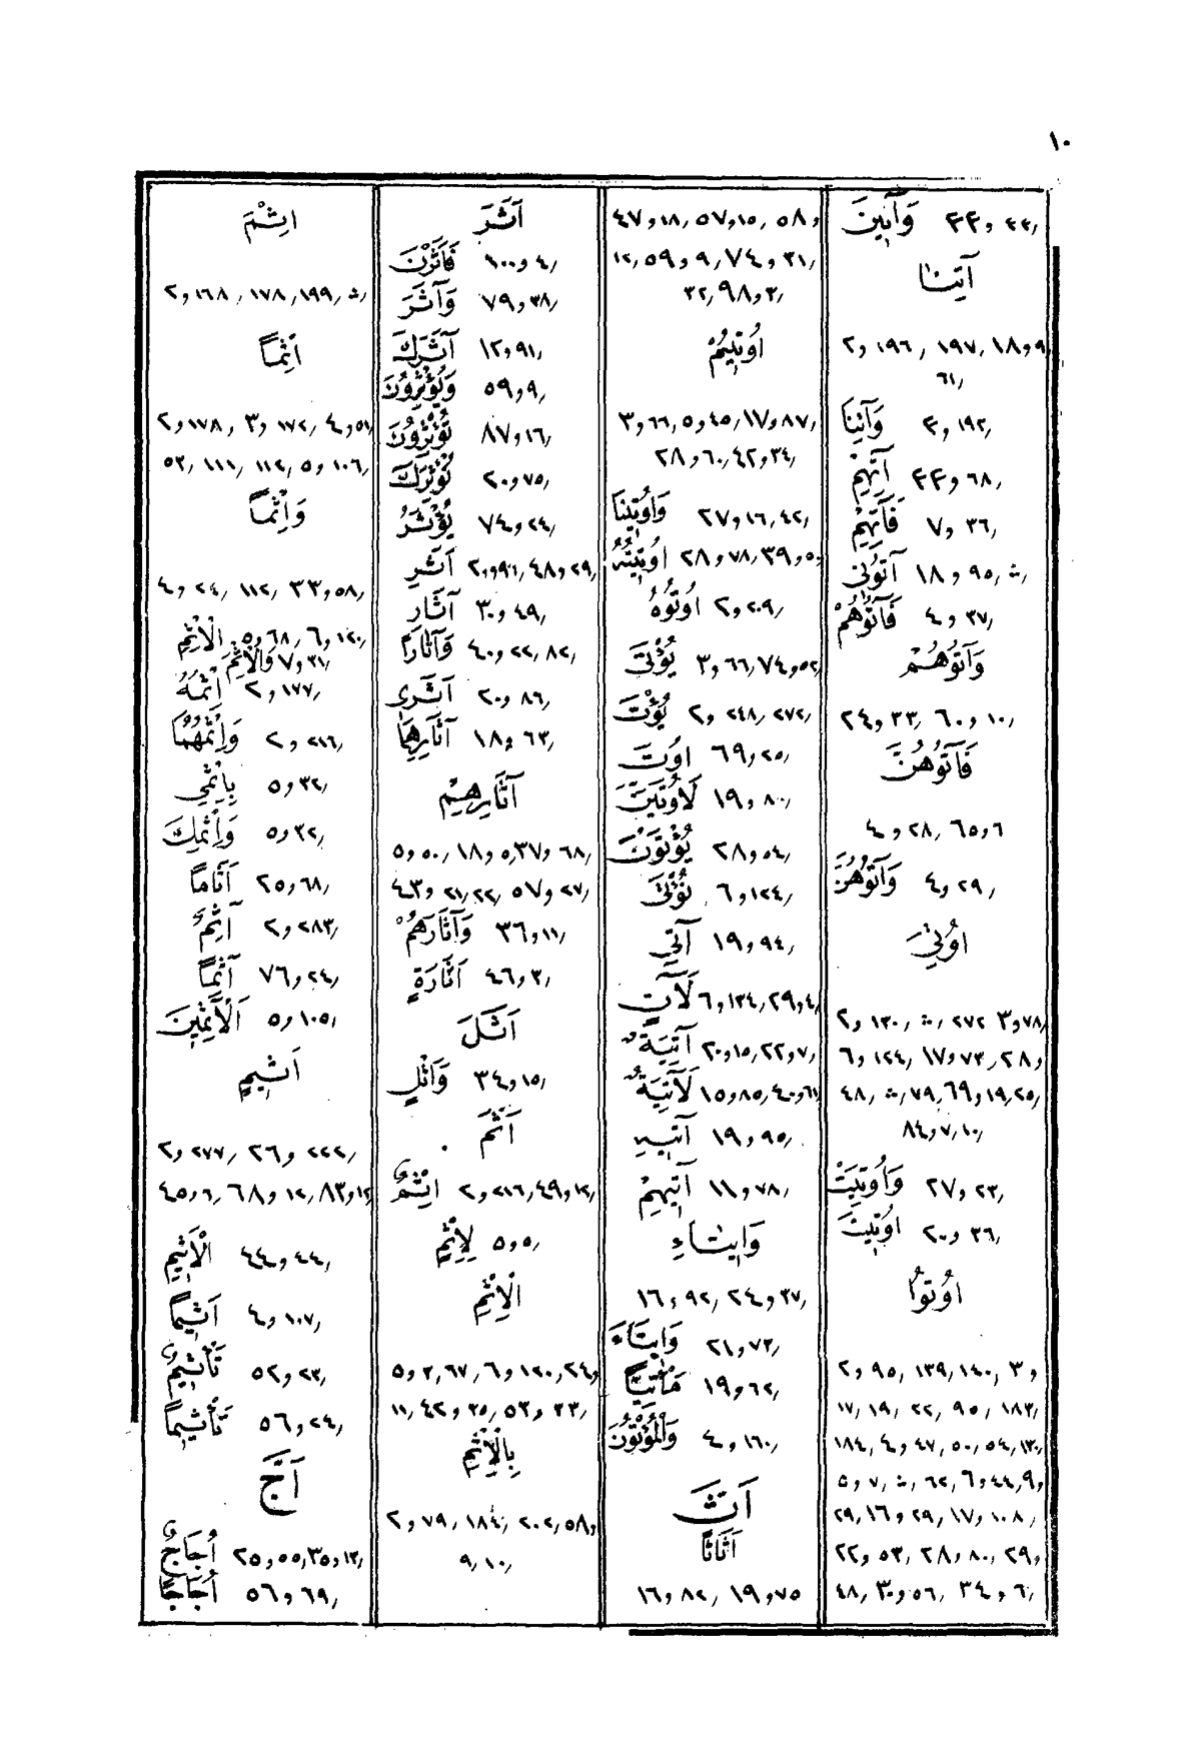 ١٠
وَآتِينَ ٣٣و٣٣؍
آتِنَا
٢و١٩٦؍ ١٩٧؍ ١٨و٩
٦١؍
وَآتِنَا ٣و١٩٣؍
آتِهِمْ ٣٣و٦٨؍
فَآتِهِمْ ٧و٣٦؍
آتُونِى ١٨و٩٥؍ث؍
فَآتُوهُمْ ٤و٣٧؍
وَآتُوهُمْ
٢٤و٣٣؍ ٦٠و١٠؍
فَآتُوهُنَّ
٤و٢٨؍ ٦٥و٦
وَآتُوهُنَّ ٤و٢٩؍
اُوْتِيَ
٢و١٣٠؍ث؍ ٢٧٢ ٣و٧٨؍
٦و١٢٤؍ ١٧و٧٣؍ ٢٨و
٤٨؍ث؍ ٧٩؍ ٦٩و١٩؍ ٢٥؍
٨٤و٧؍ ١٠؍
وَاُوْتِيَتْ ٢٧و٢٣؍
اُوْتِيتَ ٢٠و٣٦؍
اُوْتُوا
٢و٩٥؍ ١٣٩؍ ١٤٠؍ ٣و
١٧؍ ١٩؍ ٢٢؍ ٩٥؍ ١٨٣؍
١٨٤؍ ٤و٤٧؍ ٥٠؍ ٥٤؍ ١٣٠؍
٥و٧؍ث؍ ٦٢؍ ٦و٤٤؍ ٩و
٢٩؍ ١٦و٢٩؍ ١٧و١٠٨؍
٢٢و٥٣؍ ٢٨و٨٠؍ ٢٩و
٤٨؍ ٣٠و٥٦؍ ٣٤و٦؍
٤٧و١٨؍ ٥٧و١٥؍ ٥٨و
١٢؍ ٥٩و٩؍ ٧٤و٣١؍
٣٢؍ ٩٨و٣؍
اُوْتِيتُمْ
٣و٦٦؍ ٥و٤٥؍ ١٧و٨٧؍
٢٨و٦٠؍ ٤٢و٣٤؍
وَاُوْتِينَا ٢٧و١٦؍ ٤٢؍
اُوْتِيتُهُ ٢٨و٧٨؍ ٣٩و٥٠
اُوْتُوهُ ٢و٢٠٩؍
يُؤْتَى ٣و٦٦؍ ٧٤و٥٢
يُؤْتَ ٢و ٢٤٨؍ ٢٧٢؍
اُوْتَ ٦٩و٢٥؍
لَاُوتَيَنَّ ١٩و٨٠؍
يُؤْتَوْنَ ٢٨و٥٤؍
نُؤْتَى ٦و١٢٤؍
آتِي ١٩و٩٤؍
لَآتٍ ٦و١٣٤؍ ٢٩و٤؍
آتِيَةٌ ٢٠و١٥؍ ٢٢و٧؍
لَآتِيَةٌ ١٥و٨٥؍ ٤٠و٦١
آتِيهِ ١٩و٩٥؍
آتِيهِمْ ١١و٧٨؍
وَاِيتَاءِ
١٦و ٩٢؍ ٢٤و٣٧؍
وَاِيتَاءَ ٢١و٧٣؍
مَأْتِيًّا ١٩و٦٢؍
وَالْمُؤْتُونَ ٤و١٦٠؍
اَثَّ
اَثَاثًا
١٦و ٨٢؍ ١٩و٧٥
اَثَرَ
فَاَثَرْنَ ١٠٠و٤؍
وَآثَرَ ٧٩و٣٨؍
آثَرَكَ ١٢و٩١؍
وَيُؤْثِرُونَ ٥٩و٩؍
تُؤْثِرُونَ ٨٧و١٦؍
نُؤْثِرَكَ ٢٠و٧٥؍
يُؤْثَرُ ٧٤و٢٤؍
اَثَرِ ٢٠و٩٦؍ ٤٨و٢٩؍
آثَارِ ٣٠و٤٩؍
وَآثَارًا ٤٠و٢٢؍ ٨٢؍
اَثَرِى ٢٠و٨٦؍
آثَارِهِمَا ١٨و٦٣؍
آثَارِهِمْ
٥و٥٠؍ ١٨و٥؍ ٣٧و٦٨؍
٤٣و ٢١؍ ٢٢؍ ٥٧و٢٧؍
وَآثَارَهُمْ ٣٦و١١؍
اَثَارَةٍ ٤٦و٣؍
اَثَلَ
وَاَثْلٍ ٣٤و١٥؍
اَثِمَ
اِثْمٌ ٢و٢١٦؍ ٤٩و١٢؍
لِاِثْمٍ ٥و٥؍
الْاِثْمِ
٥و٣؍ ٦٧؍ ٦و١٢٠؍ ٢٤و
١١؍ ٤٢و٣٥؍ ٥٣و٣٣؍
بِالْاِثْمِ
٢و٧٩؍ ١٨٤؍ ٢٠٢؍ ٥٨و
٩؍ ١٠؍
اِثْمَ
٢و١٦٨؍ ١٧٨؍ ١٩٩؍ث؍
اِثْمًا
٢و١٧٨؍ ٣و ١٧٢؍ ٤و٥١
٥٣؍ ١١١؍ ١١٢؍ ٥و١٠٦؍
وَاِثْمًا
٤و٢٤؍ ١١٢؍ ٣٣و٥٨؍
الْاِثْمِ ٥و٦٨؍ ٦و١٢٠؍
وَالْاِثْمَ ٧و٣١؍
اِثْمُهُ ٢و١٧٧؍
وَاِثْمُهُمَا ٢و٢١٦؍
بِاِثْمِي ٥و٣٢؍
وَاِثْمِكَ ٥و٣٢؍
اَثَامًا ٢٥و٦٨؍
آثِمٌ ٢و٢٨٣؍
آثِمًا ٧٦و٢٤؍
الْآثِمِينَ ٥و١٠٥؍
اَثِيمٍ
٢و٢٧٧؍ ٢٦و٢٢٢؍
٤٥و٦؍ ٦٨و١٢؍ ٨٣و١٢
الْاَثِيمِ ٤٤و٤٤؍
اَثِيمًا ٤و١٠٧؍
تَأْثِيمٌ ٥٢و٢٣؍
تَأْثِيمًا ٥٦و٢٤؍
اَجَّ
اُجَاجٌ ٢٥و٥٥؍ ٣٥و١٣؍
اُجَاجًا ٥٦و٦٩؍